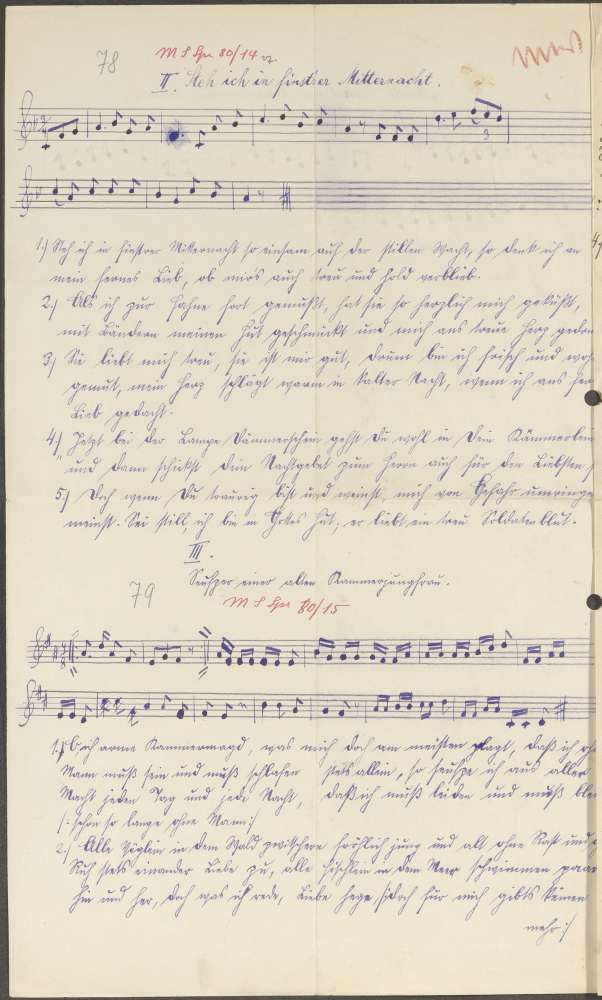 78
M S Spr 80/14
II. Steh ich in finstrer Mitternacht.
3
1.) Steh ich in finstrer Mitternacht so einsam auf der stillen Wacht, so denk ich an
mein fernes Lieb, ob mirs auch treu und hold verblieb.
2.) Als ich zur Fahne fort gemußt, hat sie so herzlich mich geküßt,
mit Bändern meinen Hut geschmückt und mich ans treue Herz gedrü
3.) Sie liebt mich treu, sie ist mir gut, drum bin ich frisch und woh
gemut, mein Herz schlägt warm in kalter Nacht, wenn ich ans fer
Lieb gedacht.
4.) Jetzt bei der Lampe Dämmerschein gehst du wohl in Dein Kämmerlein
und dann schickst Dein Nachtgebet zum Herrn auch für den Liebsten
5.) Doch wenn Du traurig bist und weinst, mich von Gefahr umringt
meinst. Sei still, ich bin in Gottes Hut, er liebt ein treu Soldatenblut.
III.
79
Seufzer einer alten Kammerjungfrau.
M S Spr 80/15
1.) Ich arme Kammermagd, was mich doch am meisten plagt, daß ich ohn
Mann muß sein und muß schlafen stets allein, so seufze ich aus aller
Macht jeden Tag und jede Nacht, daß ich muß leiden und muß blei
/: schon so lange ohne Mann :/
2.) Alle Vöglein in dem Wald zwitschern fröhlich jung und alt ohne Rast und
Ruh stets einander Liebe zu, alle Fischlein in dem Meer schwimmen paar
hin und her, doch was ich rede, Liebe hege /: doch für mich gibts keinen
mehr :/